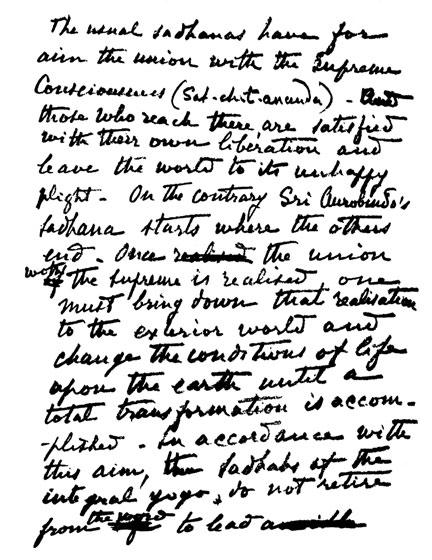 The usual sadhanas have for
aim the union with the Supreme
Consciousness (Sat-chit-ananda) - And
those who reach there, are satisfied
with their own liberation and
leave the world to its unhappy
plight - On the contrary Sri Aurobindo's
sadhana starts where the others
end. Once realised the union
with the Supreme is realised one
must bring down that realisation
to the exterior world and
change the conditions of life
upon the earth until a
total transformation is accom-
-plished - In accordance with
this aim, the sadhaks of the
integral yoga, do not retire
from the world to lead a